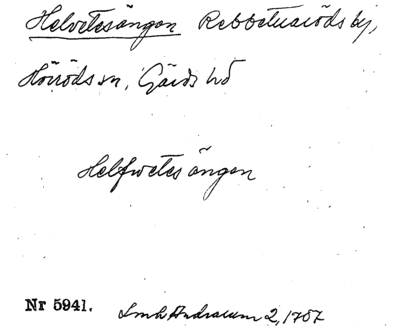 Helvetesängen Rebbetuaröds by,
Hörröds sn, Gärds hd
Helfwetes ängen
Nr 5941. Lmh Andrarum 2, 1757